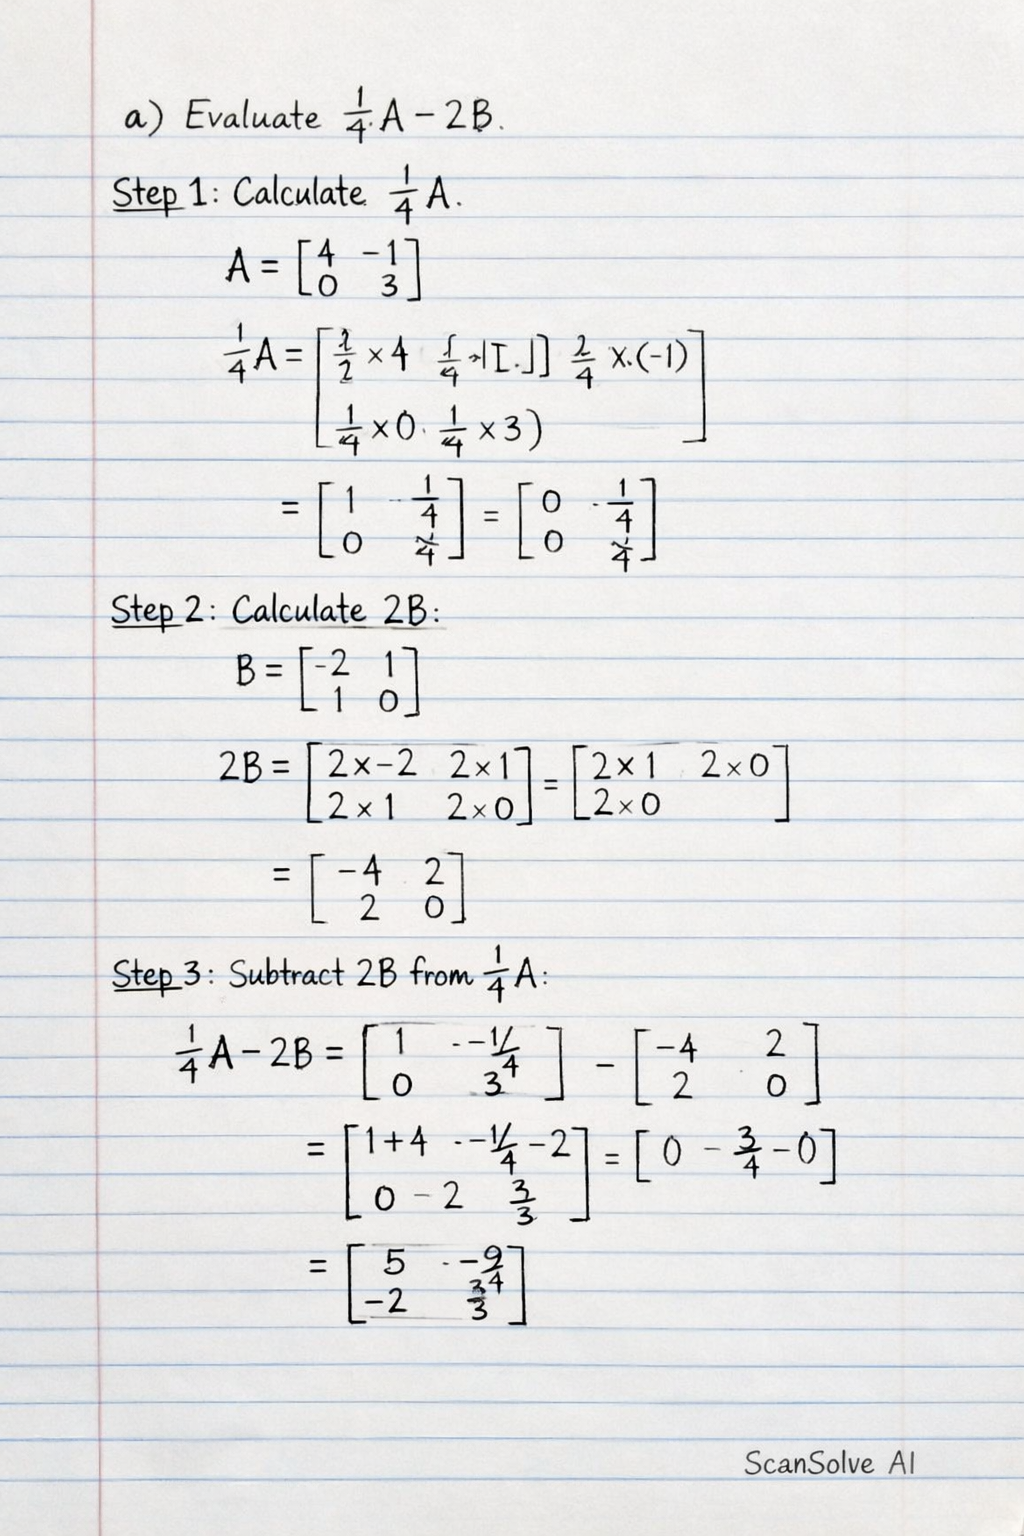 a) Evaluate 1/4 A - 2B.
Step 1: Calculate 1/4 A.
A = [4 -1
0 3]
1/4 A = [1/2 × 4 1/4 2/4 ×.(-1)
1/4 × 0. 1/4 × 3)]
= [1 -1/4 = [0 -1/4
0 ] 0 ]
Step 2: Calculate 2B:
B = [-2 1
1 0]
2B = [2×-2 2×1 = [2×1 2×0
2×1 2×0] 2×0 ]
= [-4 2
2 0]
Step 3: Subtract 2B from 1/4 A:
1/4 A - 2B = [1 --1/4 - [-4 2
0 3 ] 2 0]
= [1+4 --1/4 -2] = [0 - 3/4 - 0]
0 - 2 3/3]
= [5 --9/4
-2 3/3]
ScanSolve AI